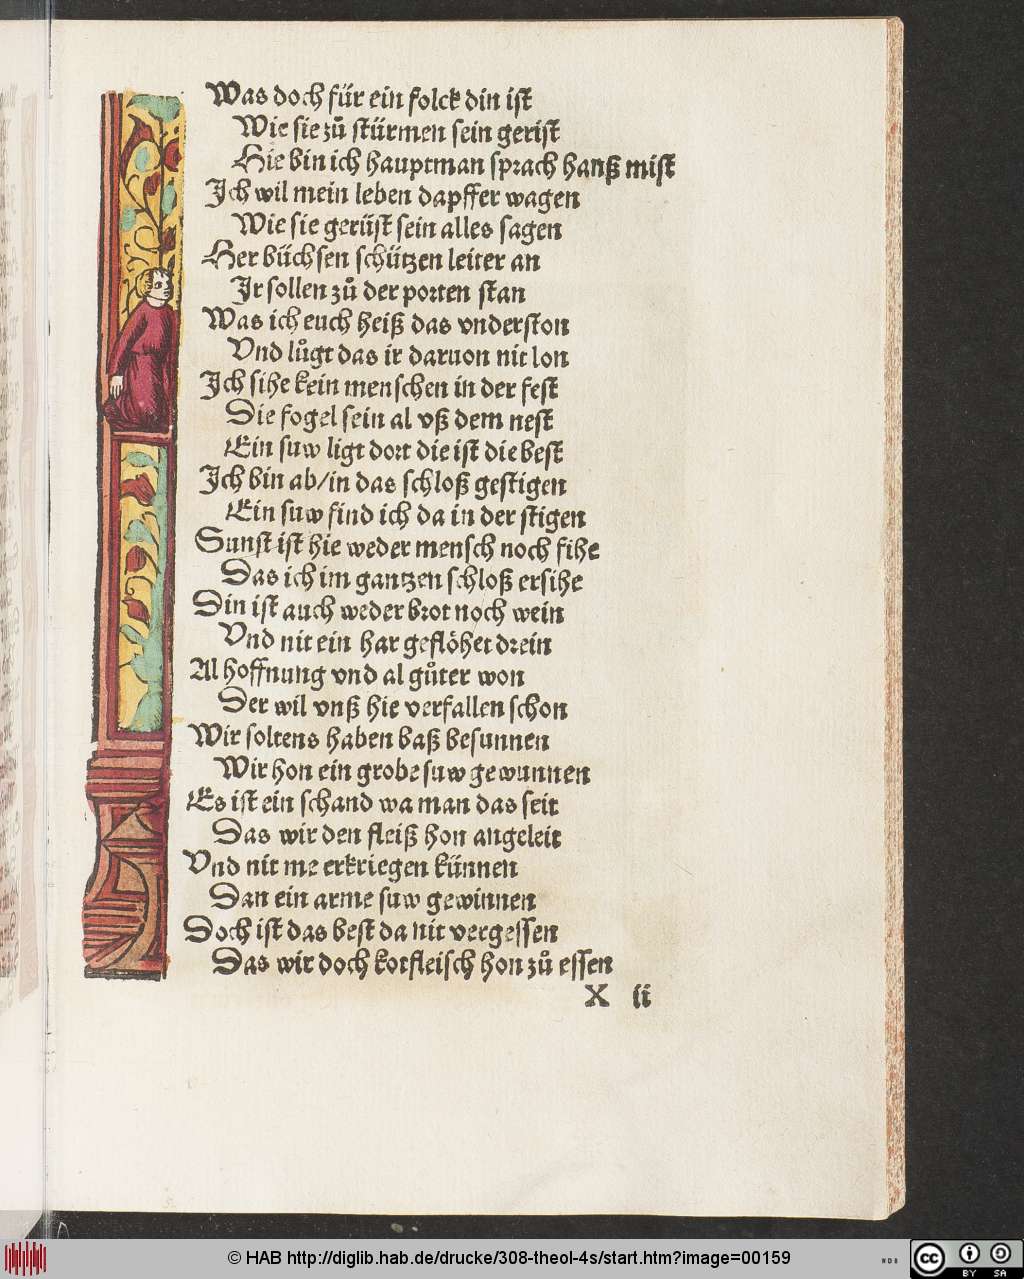 Was doch für ein folck din ist
Wie sie zů stürmen sein gerist
Hie bin ich hauptman sprach hanß mist
Ich wil mein leben dapffer wagen
Wie sie gerüst sein alles sagen
Her büchsen schützen leiter an
Ir sollen zů der porten stan
Was ich euch heiß das vnderston
Vnd lůgt das ir daruon nit lon
Ich sihe kein menschen in der fest
Die fogel sein al vß dem nest
Ein suw ligt dort die ist die best
Ich bin ab/in das schloß gestigen
Ein suw find ich da in der stigen
Sunst ist hie weder mensch noch fihe
Das ich im gantzen schloß ersihe
Din ist auch weder brot noch wein
Vnd nit ein har geflöhet drein
Al hoffnung vnd al gůter won
Der wil vnß hie verfallen schon
Wir soltens haben baß besunnen
Wir hon ein grobe suw gewunnen
Es ist ein schand wa man das seit
Das wir den fleiß hon angeleit
Vnd nit me erkriegen künnen
Dan ein arme suw gewinnen
Doch ist das best da nit vergessen
Das wir doch kotfleisch hon zů essen
X ii
© HAB http://diglib.hab.de/drucke/308-theol-4s/start.htm?image=00159
WDB
cc BY SA